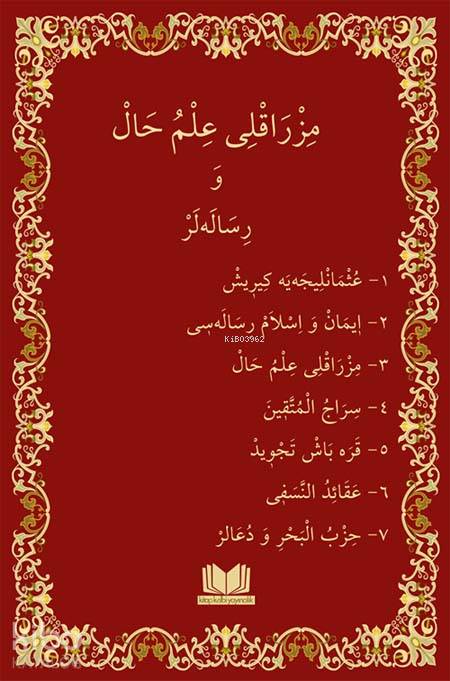 مِزْرَاقْلِى عِلْمُ حَالْ
وَ
رِسَالَه‌لَرْ
١- عُثْمَانْلِيجَه‌يَه كِيرِيشْ
٢- اِيمَانْ وَ اِسْلَامْ رِسَالَه‌سِى
KiB03962
٣- مِزْرَاقْلِى عِلْمُ حَالْ
٤- سِرَاجُ الْمُتَّقِينَ
٥- قَرَه بَاشْ تَجْوِيدْ
٦- عَقَائِدُ النَّسَفِى
٧- حِزْبُ الْبَحْرِ وَ دُعَالرْ
kitap kalbi yayıncılık